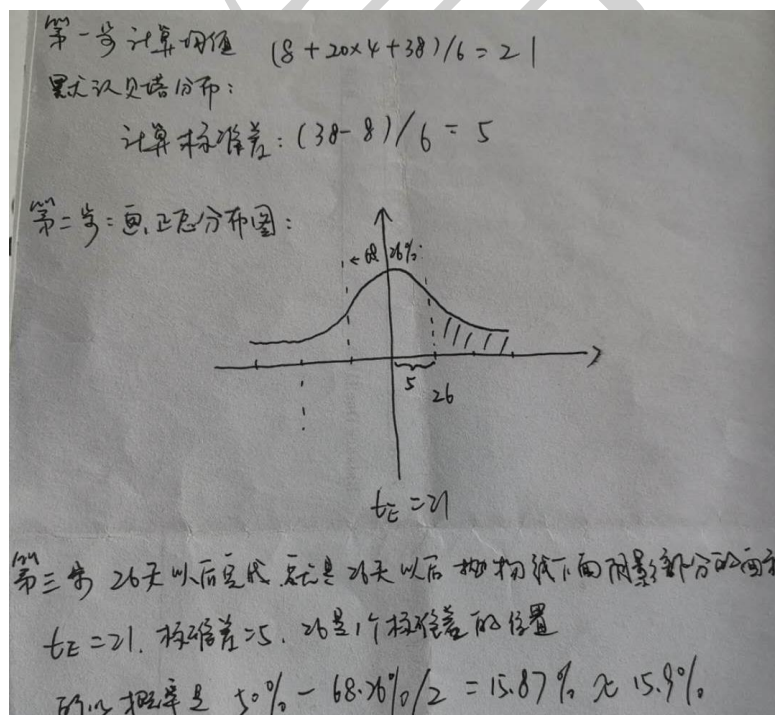 第一步 计算均值 (8+20×4+38)/6=21
默认贝塔分布:
计算标准差:(38-8)/6=5
第二步:画正态分布图:
68.26%
5
26
tE=21
第三步 26天以后完成 就是26天以后抛物线下面阴影部分的面积
tE=21. 标准差=5. 26是1个标准差的位置
所以概率是 50%-68.26%/2=15.87%≈15.9%